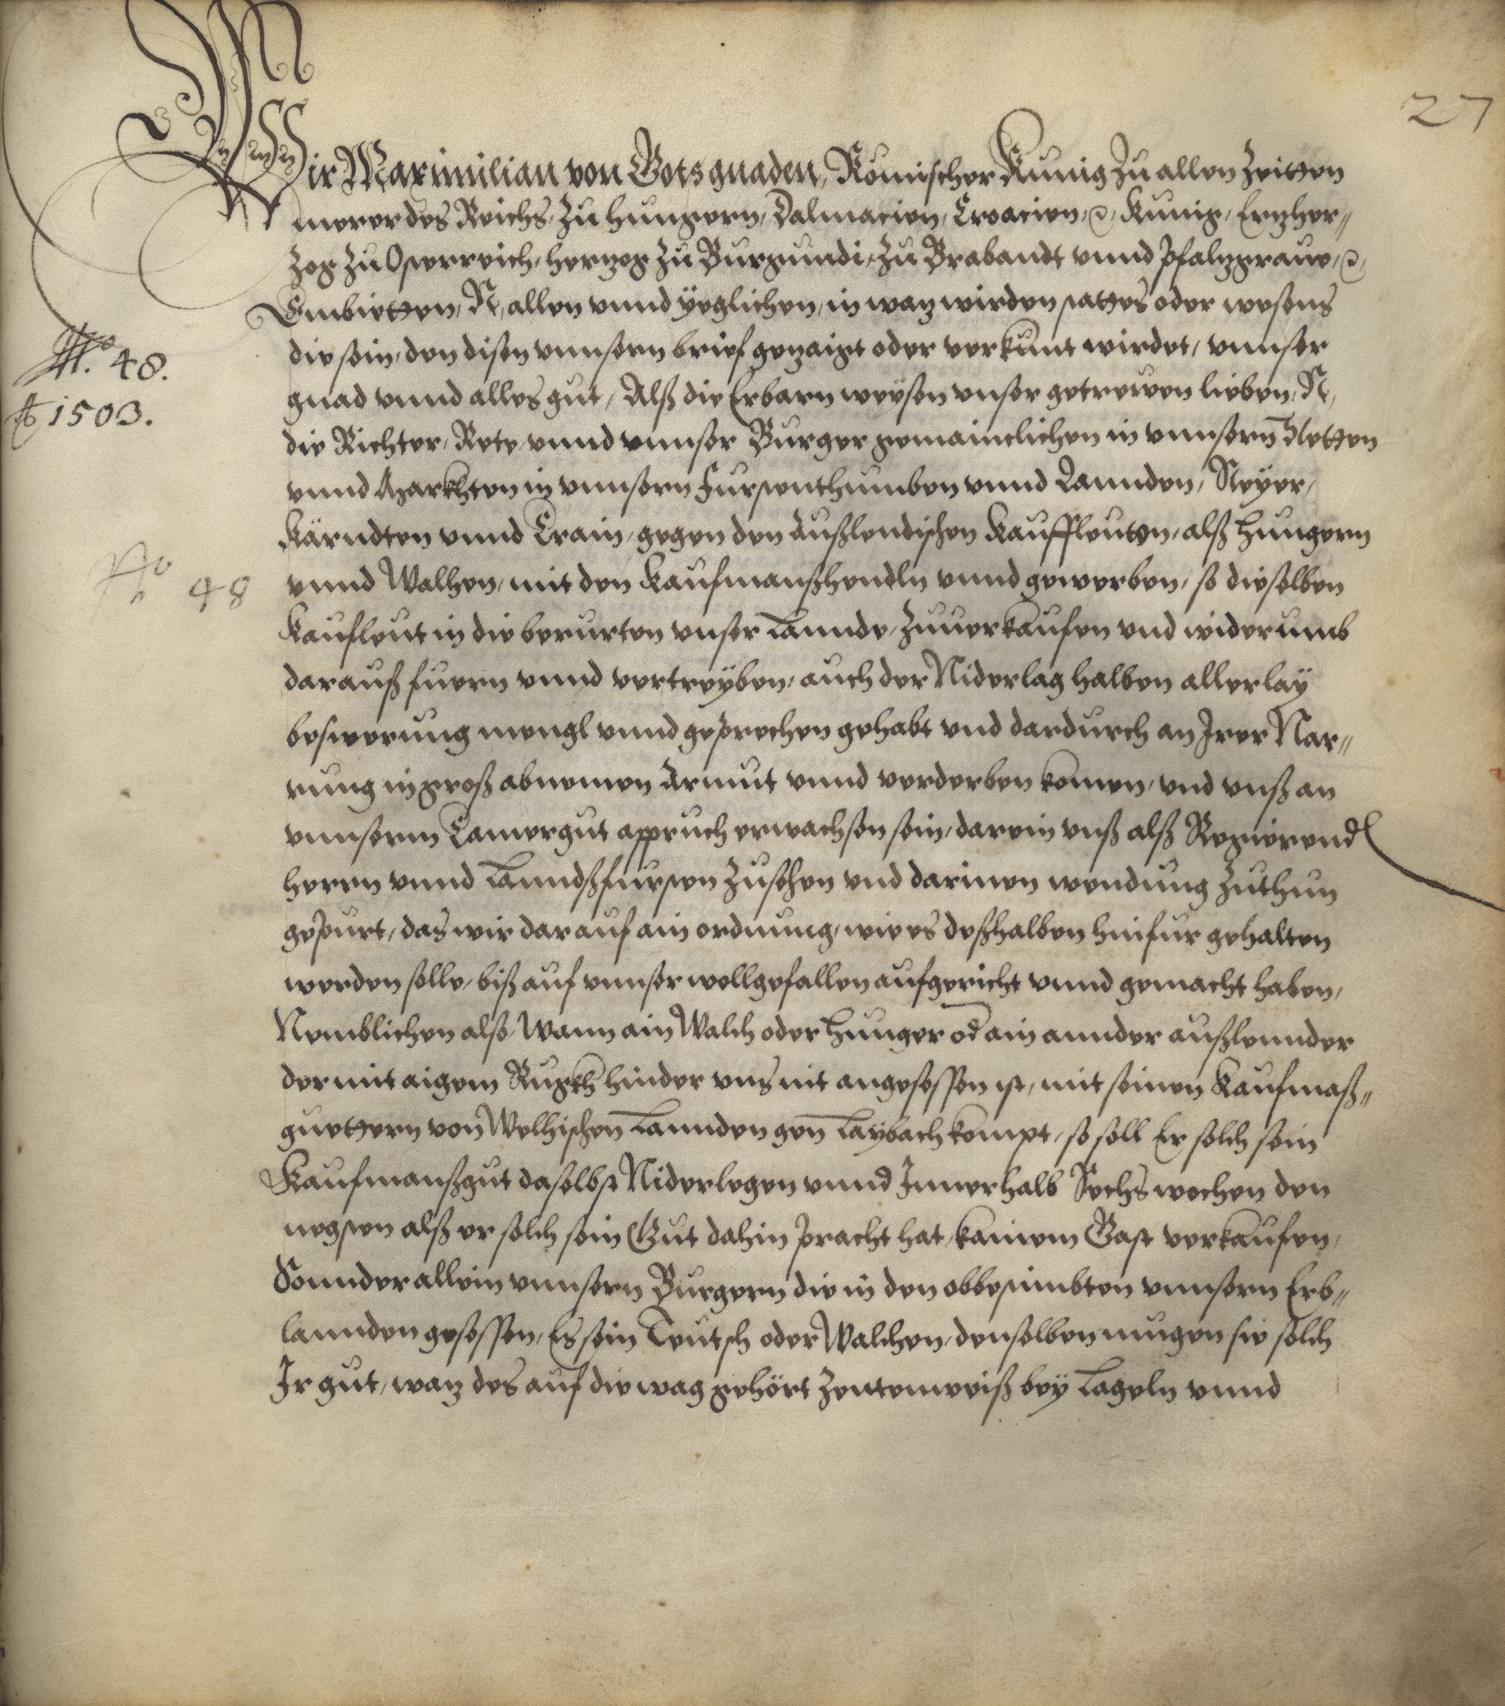 27
Wir Maximilian von Gots gnaden, Römischer Kunig Zu allen Zeitten
merer des Reichs, Zu Hungern, Dalmacien, Croacien, ⁊c, Kunig, Ertzher⸗
Zog Zu Osterreich, Hertzog Zu Burgundi, Zu Brabandt vnnd Pfaltzgraue, ⁊c,
Embietten, N, allen vnnd yeglichen, in waz wirden stattes oder wesens
die sein, den disen vnnsern brief getzaigt oder verkunt wirdet, vnnser
No. 48.
gnad vnnd alles gut, Alß die Erbarn weysen vnser getrewen lieben, N,
Ao 1503.
die Richter, Rete, vnnd vnnser Burger gemainclichen in vnnsern Stetten
vnnd Markhten in vnnsern Furstenthumben vnnd Lannden, Steyer,
Kärndten vnnd Crain, gegen den Außlendischen Kauffleuten, alß Hungern
No 48
vnnd Walhen, mit den Kaufmanßhendln vnnd gewerben, so dieselben
Kaufleut in die berurten vnser Lannde, Zuuerkaufen vnd widerumb
darauß fuern vnnd vertreyben, auch der Niderlag halben allerlay
beswerung mengl vnnd gesprechen gehabt vnd dardurch an Irer Nar⸗
rung in groß abnemen Armut vnnd verderben komen, vnd vnß an
vnnserm Camergut appruch erwachsen sein, darein vnß alß Regierend
herrn vnnd Lanndßfursten Zusehen vnd darinen wendung Zuthun
gepurt, das wir darauf ain ordnung, wie es deßhalben hinfur gehalten
werden solle, biß auf vnnser wollgefallen aufgericht vnnd gemacht haben,
Nemblichen also, Wann ain Walch oder Hunger od ain annder außlennder
der mit aigem Rugkh hinder vns nit angesessen ist, mit seinen Kaufmaß⸗
guettern von Welhischen Lannden gen Laybach kompt, so soll Er solch sein
Kaufmanßgut daselbst Niderlegen vnnd Innerhalb Sechs wochen den
negsten alß er solch sein Gut dahin pracht hat, kainem Gast verkaufen,
Sonnder allein vnnsern Burgern die in den obbestimbten vnnsern Erb⸗
lannden gesessen, Es sein Teutsch oder Walchen, denselben mugen sie solch
Ir gut, waz des auf die wag gehört Zentenweiß bey Lageln vnnd